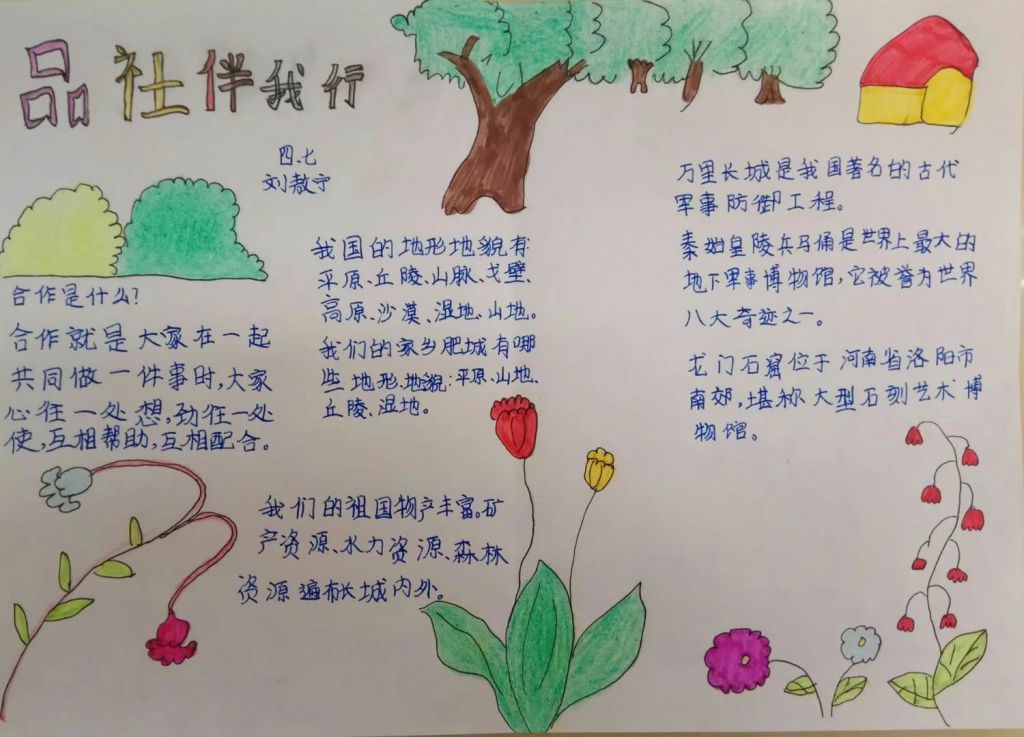 品社伴我行
四.七
刘敖宁
合作是什么?
合作就是大家在一起
共同做一件事时,大家
心往一处想,劲往一处
使,互相帮助,互相配合。
我国的地形地貌有:
平原、丘陵、山脉、戈壁、
高原、沙漠、湿地、山地。
我们的家乡肥城有哪
些地形、地貌:平原、山地、
丘陵、湿地。
我们的祖国物产丰富。矿
产资源、水力资源、森林
资源遍布长城内外。
万里长城是我国著名的古代
军事防御工程。
秦始皇陵兵马俑是世界上最大的
地下军事博物馆,它被誉为世界
八大奇迹之一。
龙门石窟位于河南省洛阳市
南郊,堪称大型石刻艺术博
物馆。